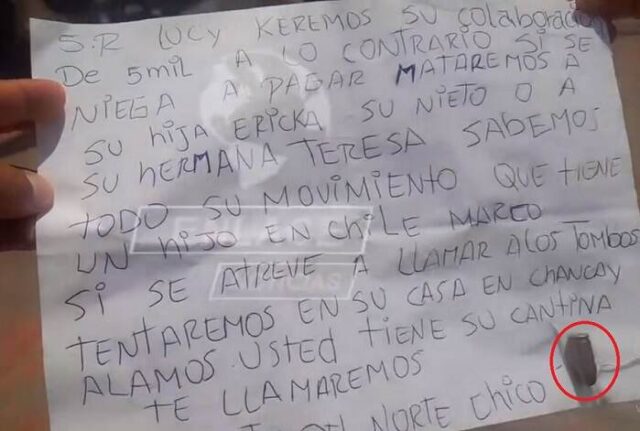 S.R LUCY KEREMOS SU COlAbORACION
DE 5MIL A LO CONTRARIO SI SE
NIEGA A PAGAR MATAREMOS A
SU hiJA ERICKA SU NIETO O A
SU hERMANA TERESA SABEMOS
TODO SU MOVIMIENTO QUE TIENE
UN hiJO EN ChiLE MARCO
SI SE ATREVE A LLAMAR A LOS TOMBOS
TENTAREMOS EN SU CASA EN CHANCAY
ALAMOS USTED TIENE SU CANTINA
TE LLAMAREMOS
NORTE ChiCO
NOTICIAS